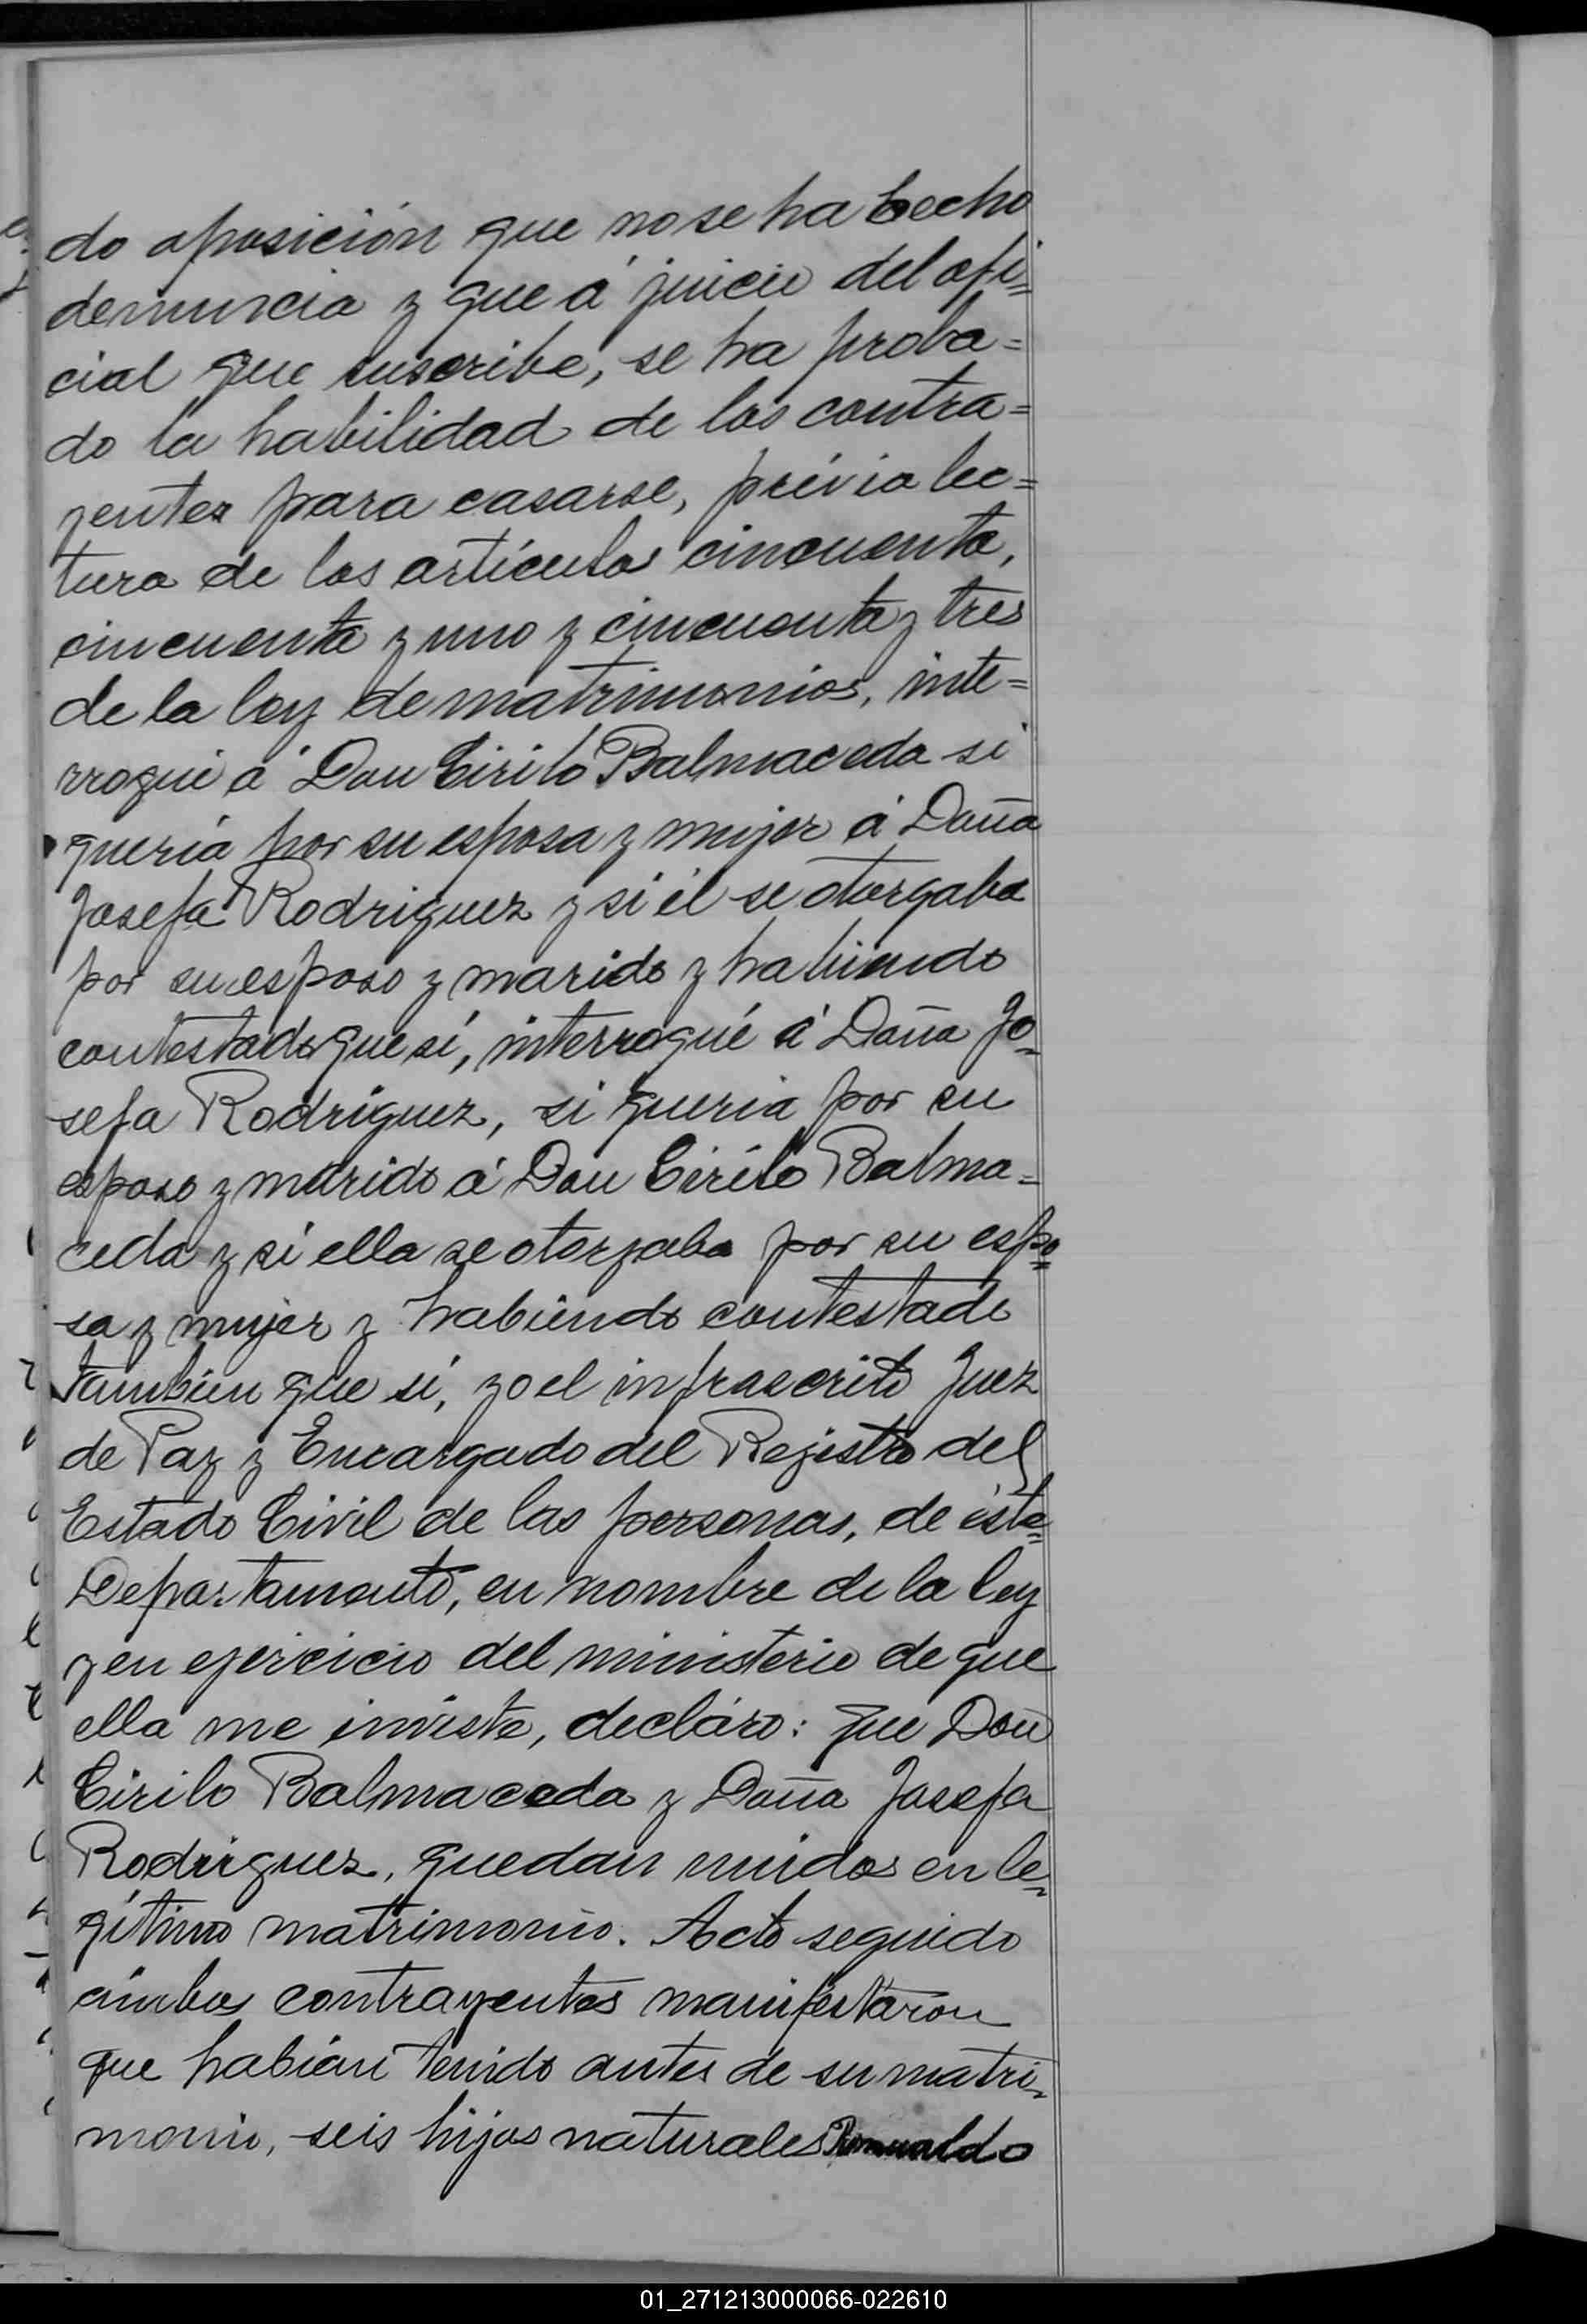 do oposición que no se ha hecho
denuncia y que á juicio del ofi=
cial que suscribe, se ha proba=
do la habilidad de los contra=
yentes para casarse, prévia lec=
tura de los artículos cincuenta,
cincuenta y uno y cincuenta y tres
de la ley de matrimonios, inte=
rrogué á Don Cirilo Balmaceda si
quería por su esposa y mujer á Doña
Josefa Rodriguez y si él se otorgaba
por su esposo y marido y habiendo
contestado que sí, interrogué á Doña Jo=
sefa Rodríguez, si quería por su
esposo y marido á Don Cirilo Balma=
ceda y si ella se otorgaba por su espo=
sa y mujer y habiendo contestado
tambien que sí, yo el infrascrito Juez
de Paz y Encargado del Registro del
Estado Civil de las personas, de éste
Departamento, en nombre de la ley
y en ejercicio del ministerio de que
ella me inviste, decláro: que Don
Cirilo Balmaceda y Doña Josefa
Rodriguez, quedan unidos en le=
gítimo matrimonio. Acto seguido
ámbos contrayentes manifestaron
que habían tenido antes de su matri=
monio, seis hijos naturales Romualdo
01_271213000066-022610